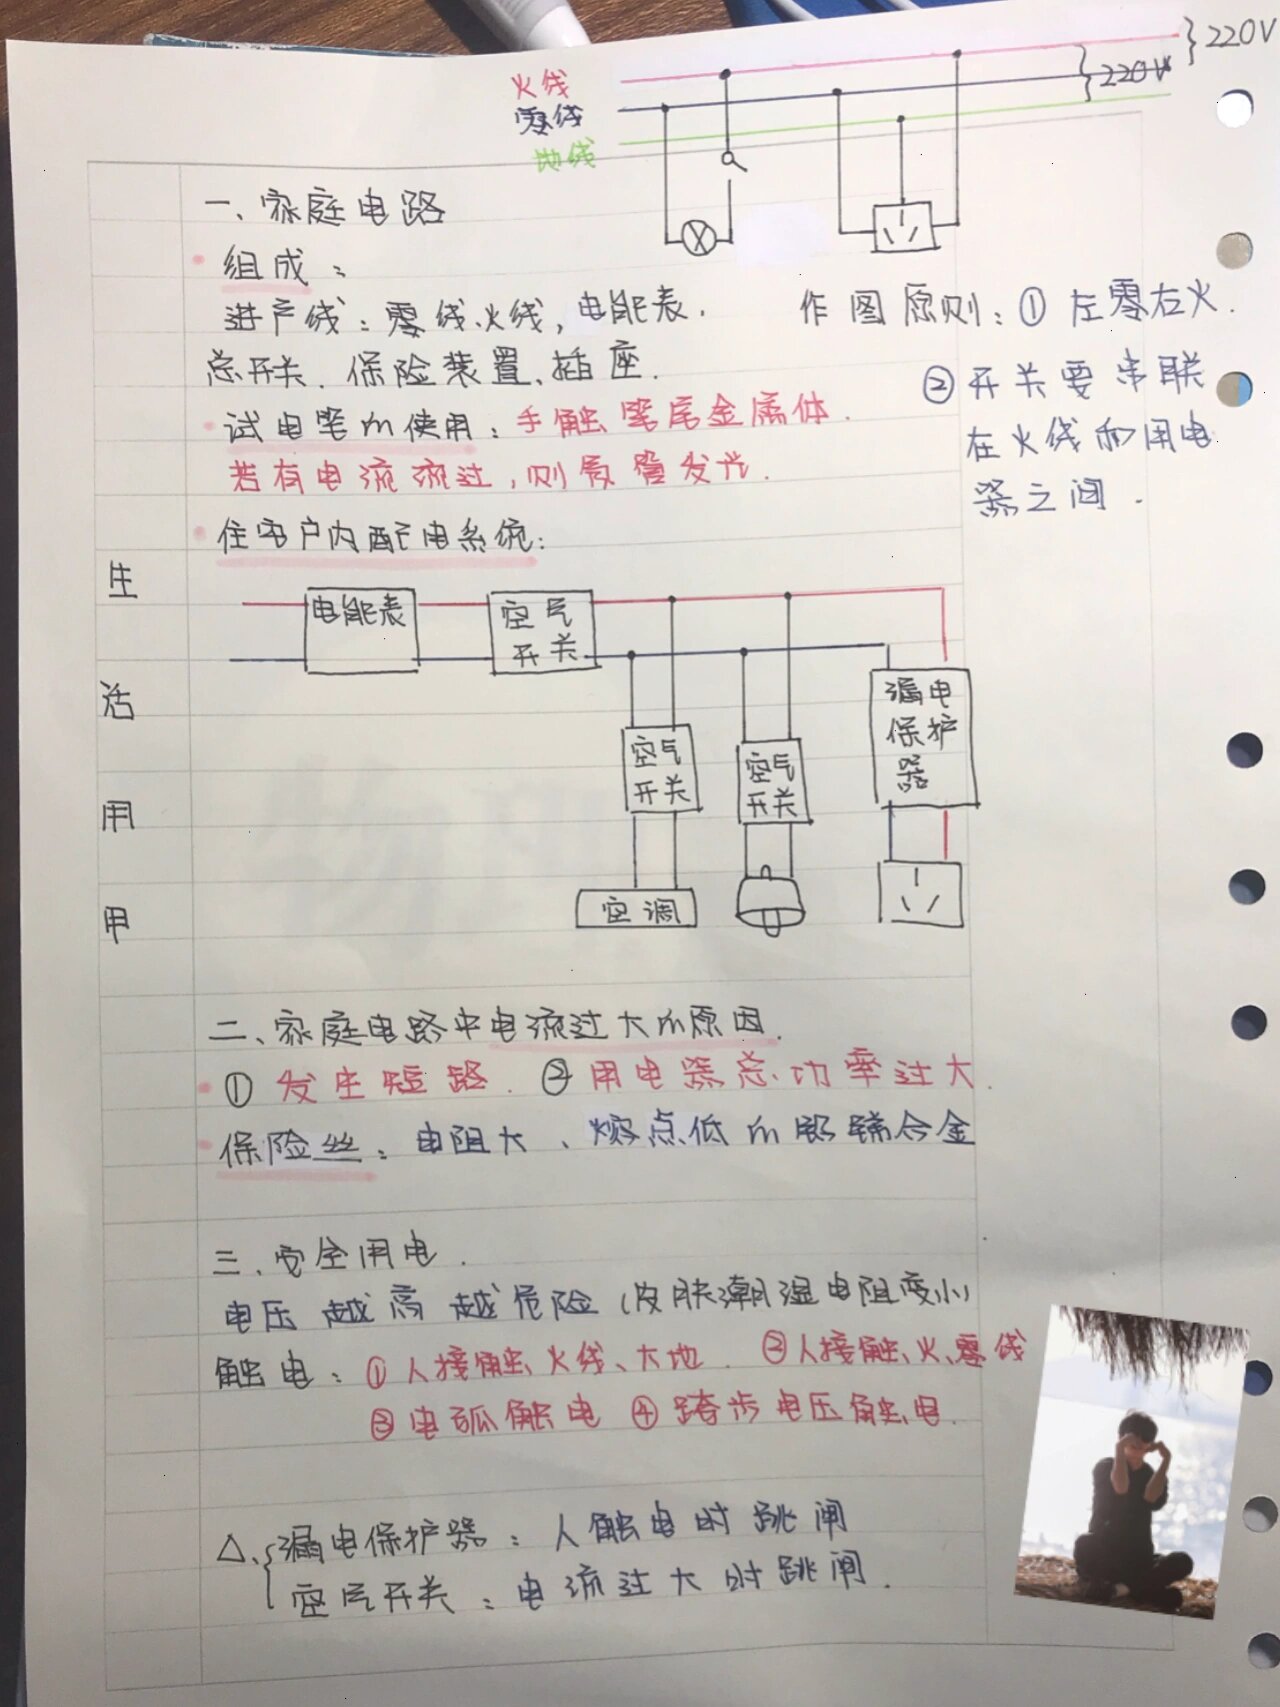 火线
零线
地线
220V
220V
一、家庭电路
组成：
进户线：零线、火线，电能表.
总开关.保险装置、插座.
试电笔的使用：手触笔尾金属体.
若有电流流过，则氖管发光.
作图原则：①左零右火.
②开关要串联
在火线和用电
器之间.
住宅户内配电系统：
电能表
空气
开关
空气
开关
空气
开关
漏电
保护
器
空调
生
活
用
电
二、家庭电路中电流过大的原因.
①发生短路.②用电器总功率过大.
保险丝：电阻大、熔点低的铅锑合金
三、安全用电.
电压越高越危险（皮肤潮湿电阻变小）
触电：①人接触火线、大地.②人接触火、零线
③电弧触电④跨步电压触电.
△、漏电保护器：人触电时跳闸
空气开关：电流过大时跳闸.